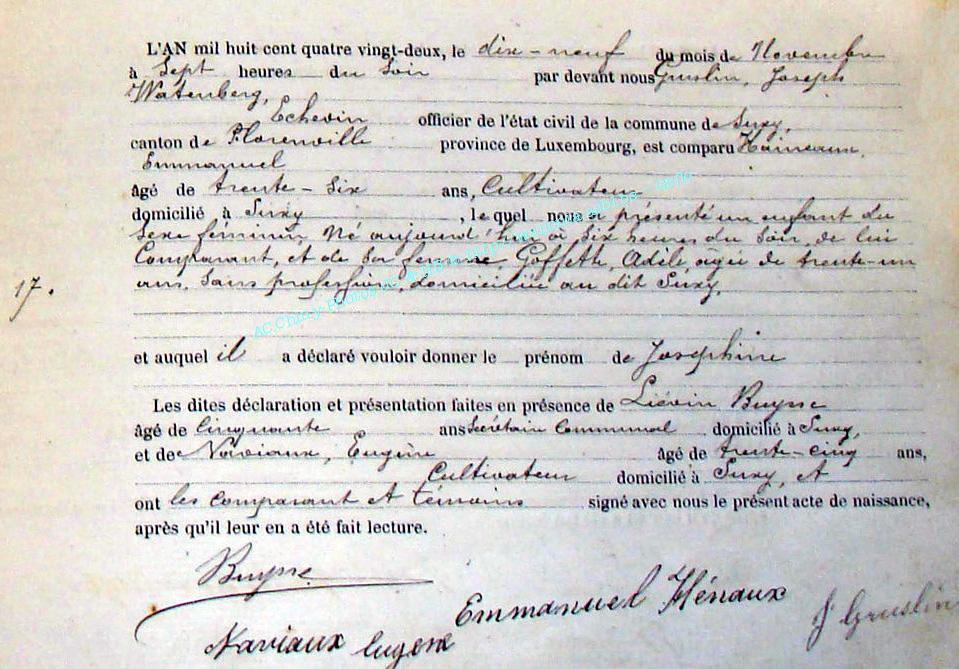 L'AN mil huit cent quatre vingt-deux, le dix-neuf du mois de Novembre
à Sept heures du Soir par devant nous Gruslin, Joseph
Watenberg,
Echevin officier de l'état civil de la commune de Suxy,
canton de Florenville province de Luxembourg, est comparu Haineaux,
Emmanuel
âgé de trente-Six ans, Cultivateur
domicilié à Suxy, lequel nous a présenté un enfant du
Sexe féminin, Né aujourd'hui à Six heures du Soir, de lui
Comparant, et de Sa femme, Goffette, Adèle agée de trente-un
ans, Sans profession, domiciliée au dit Suxy,
17.
et auquel il a déclaré vouloir donner le prénom de Joséphine
Les dites déclaration et présentation faites en présence de Liévin Buysse
âgé de Cinquante ans Secrétaire Communal domicilié à Suxy,
et de Naviaux, Eugène âgé de trente-cinq ans,
Cultivateur domicilié à Suxy, et
ont les comparant et témoins signé avec nous le présent acte de naissance,
après qu'il leur en a été fait lecture.
Buysse
Emmanuel Hénaux
J Gruslin
Naviaux Eugene